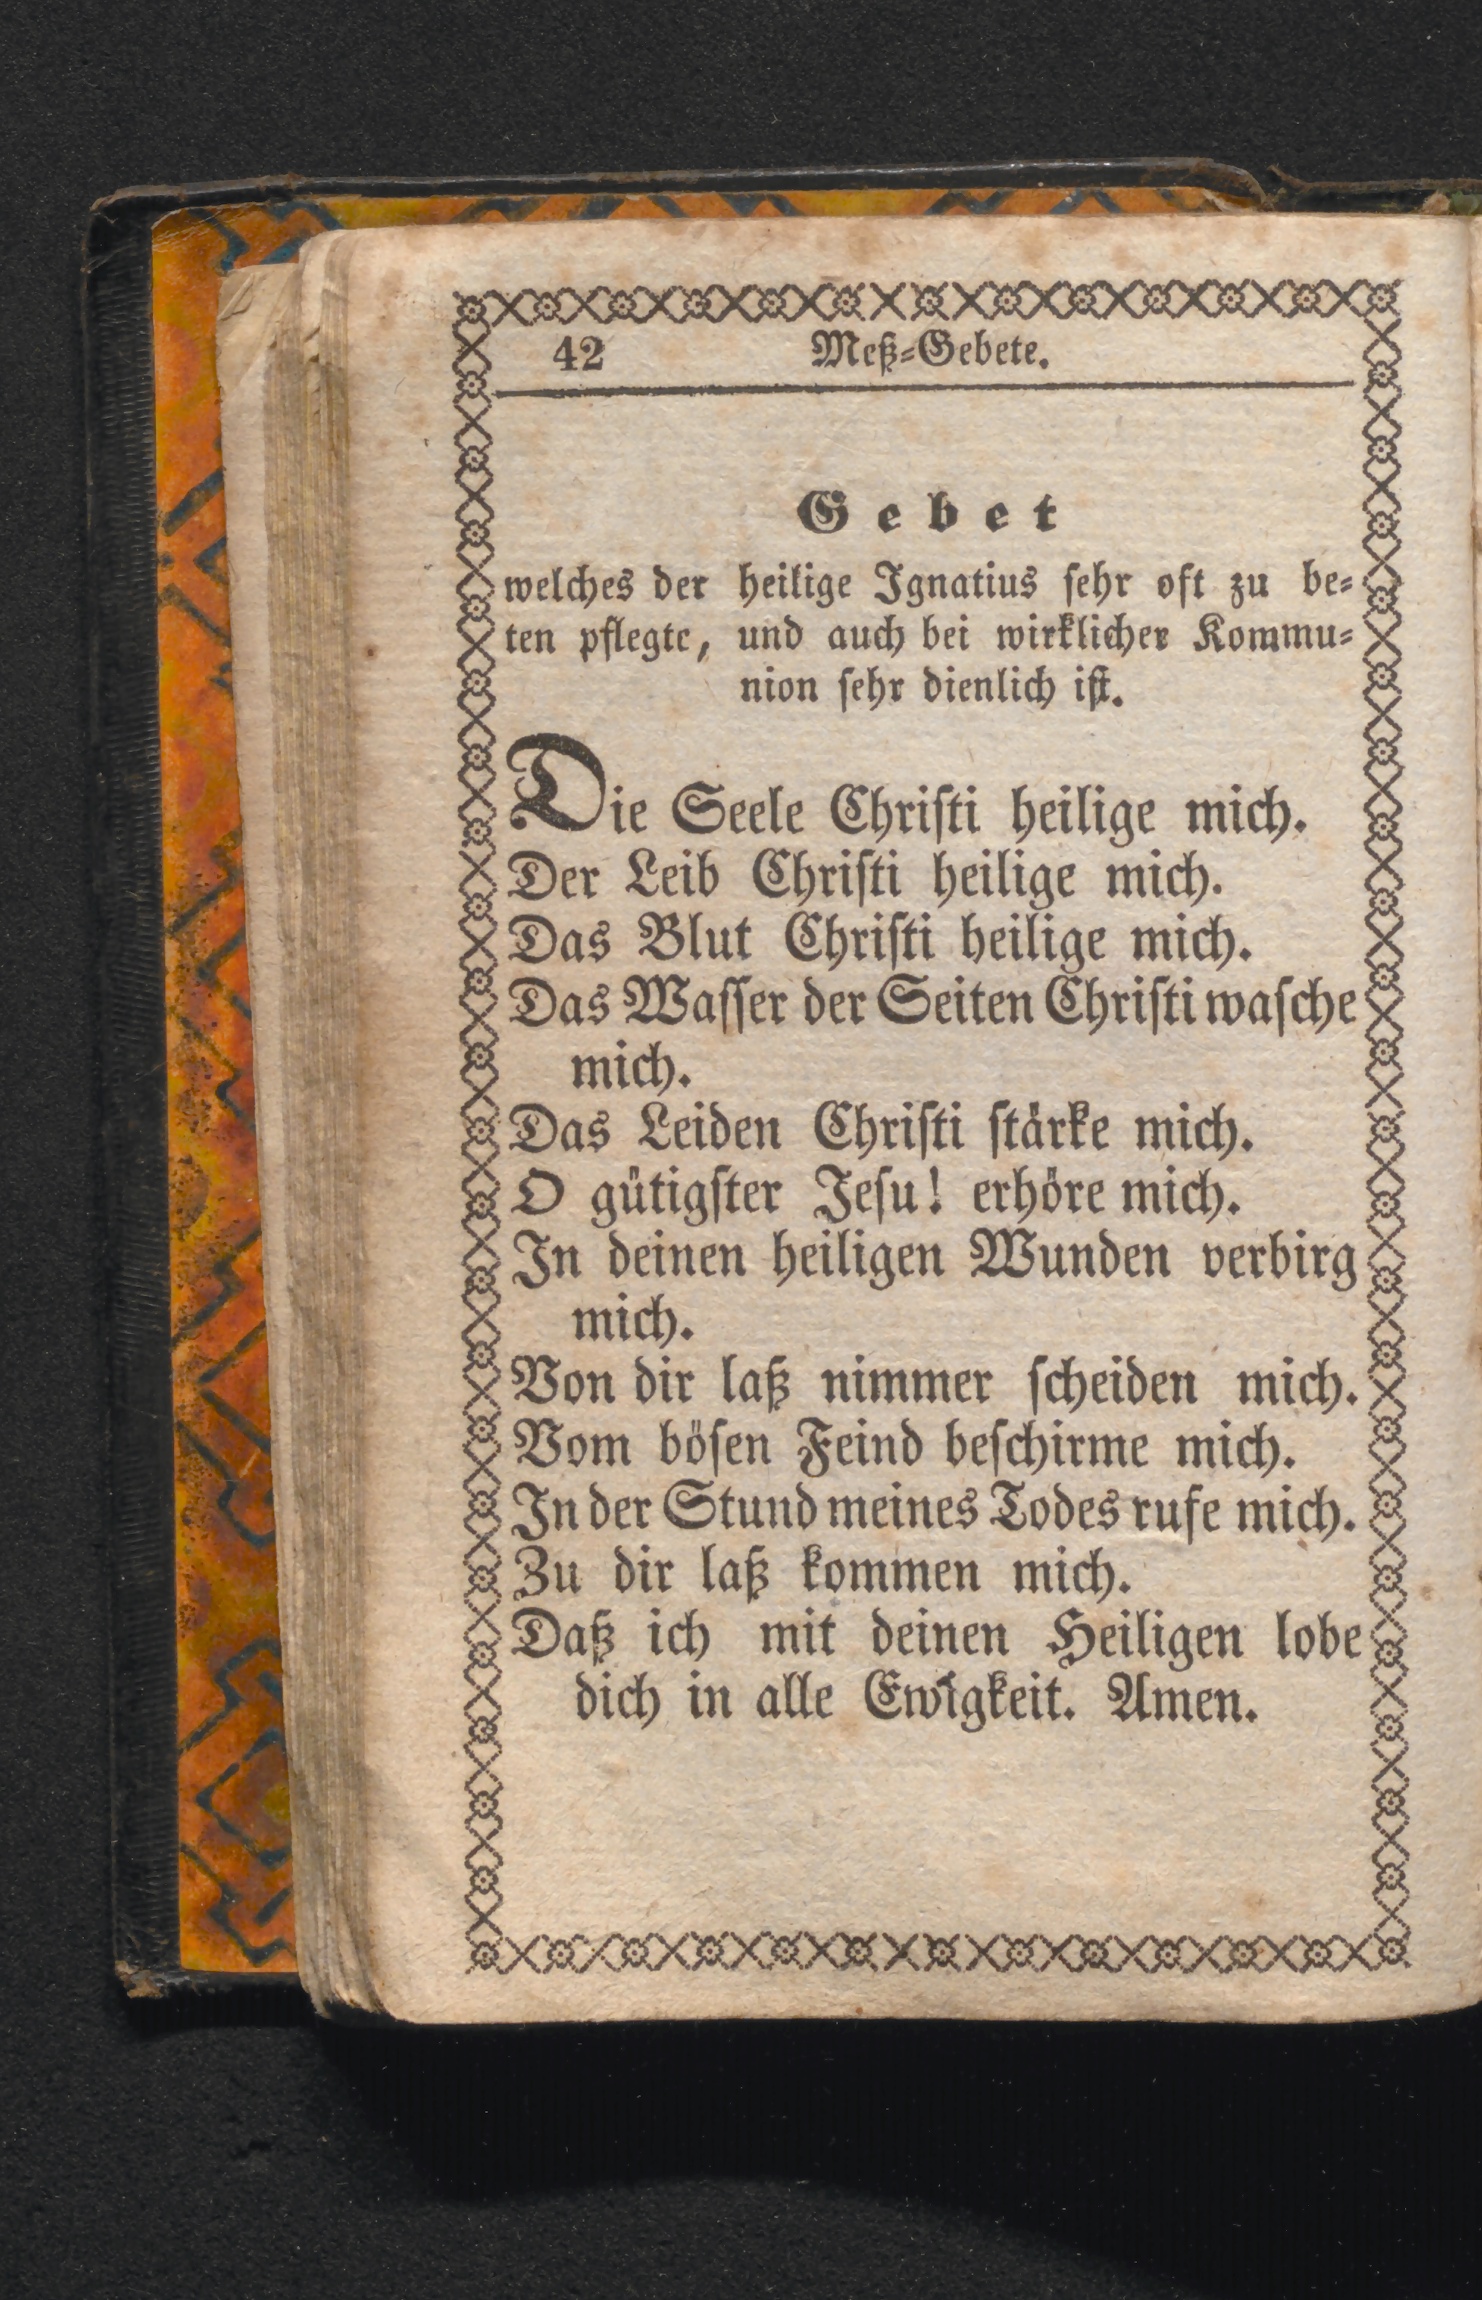 42 Meß-Gebete.
Gebet
welches der heilige Ignatius ſehr oft zu be-
ten pflegte, und auch bei wirklicher Kommu-
nion ſehr dienlich iſt.
Die Seele Chriſti heilige mich.
Der Leib Chriſti heilige mich.
Das Blut Chriſti heilige mich.
Das Waſſer der Seiten Chriſti waſche
mich.
Das Leiden Chriſti ſtärke mich.
O gütigſter Jeſu! erhöre mich.
In deinen heiligen Wunden verbirg
mich.
Von dir laß nimmer ſcheiden mich.
Vom böſen Feind beſchirme mich.
In der Stund meines Todes rufe mich.
Zu dir laß kommen mich.
Daß ich mit deinen Heiligen lobe
dich in alle Ewigkeit. Amen.